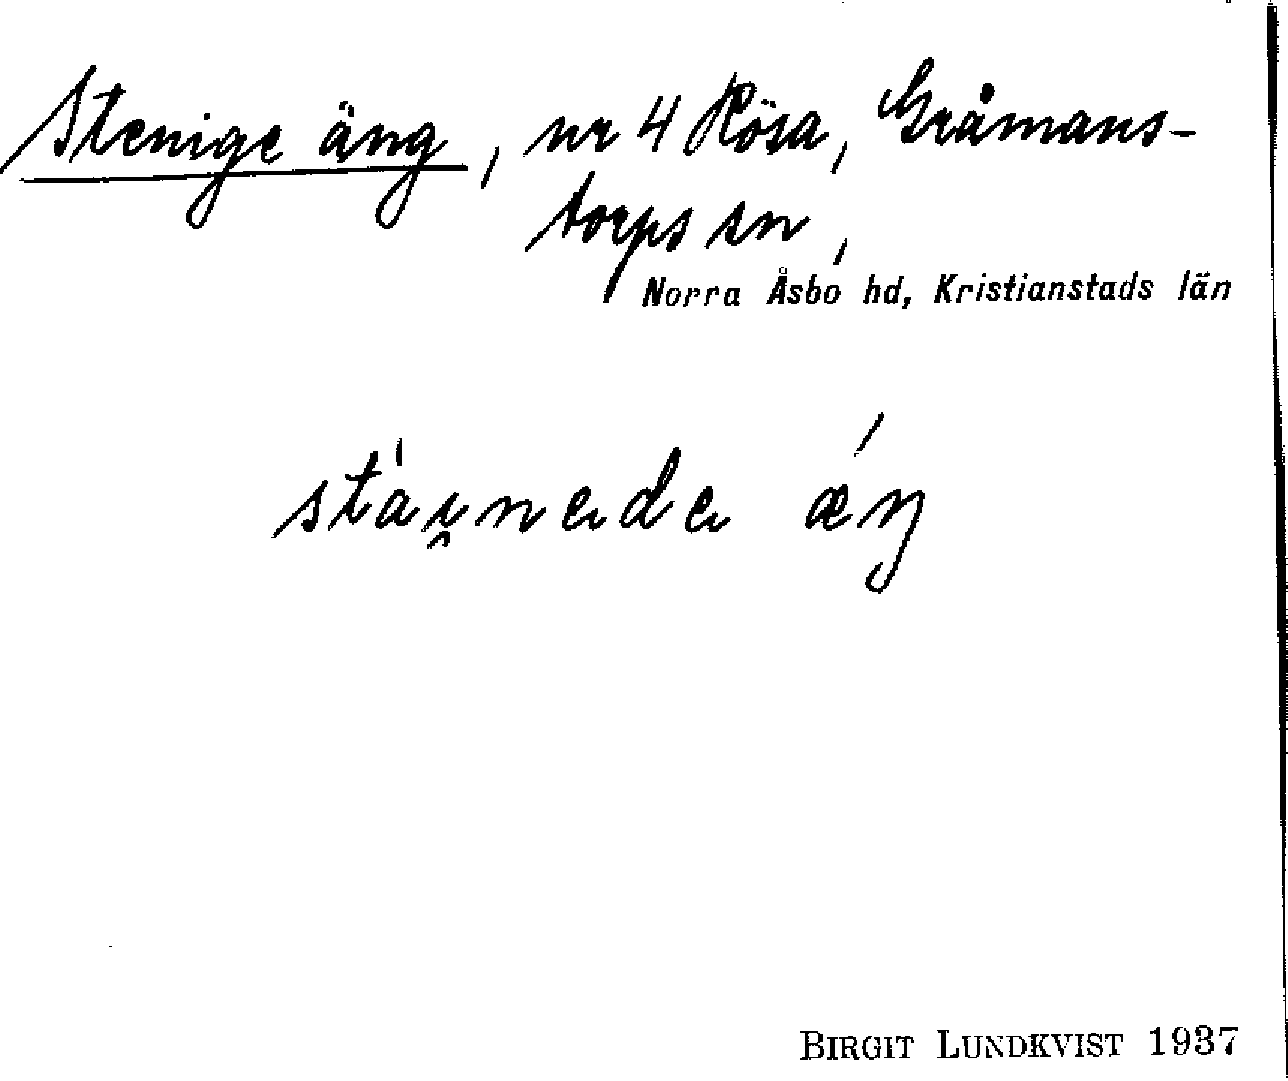 Stenige äng, nr 4 Rösa, Gråmans-
torps sn,
Norra Åsbo hd, Kristianstads län
stài̯nədə ǽŋ
BIRGIT LUNDKVIST 1937